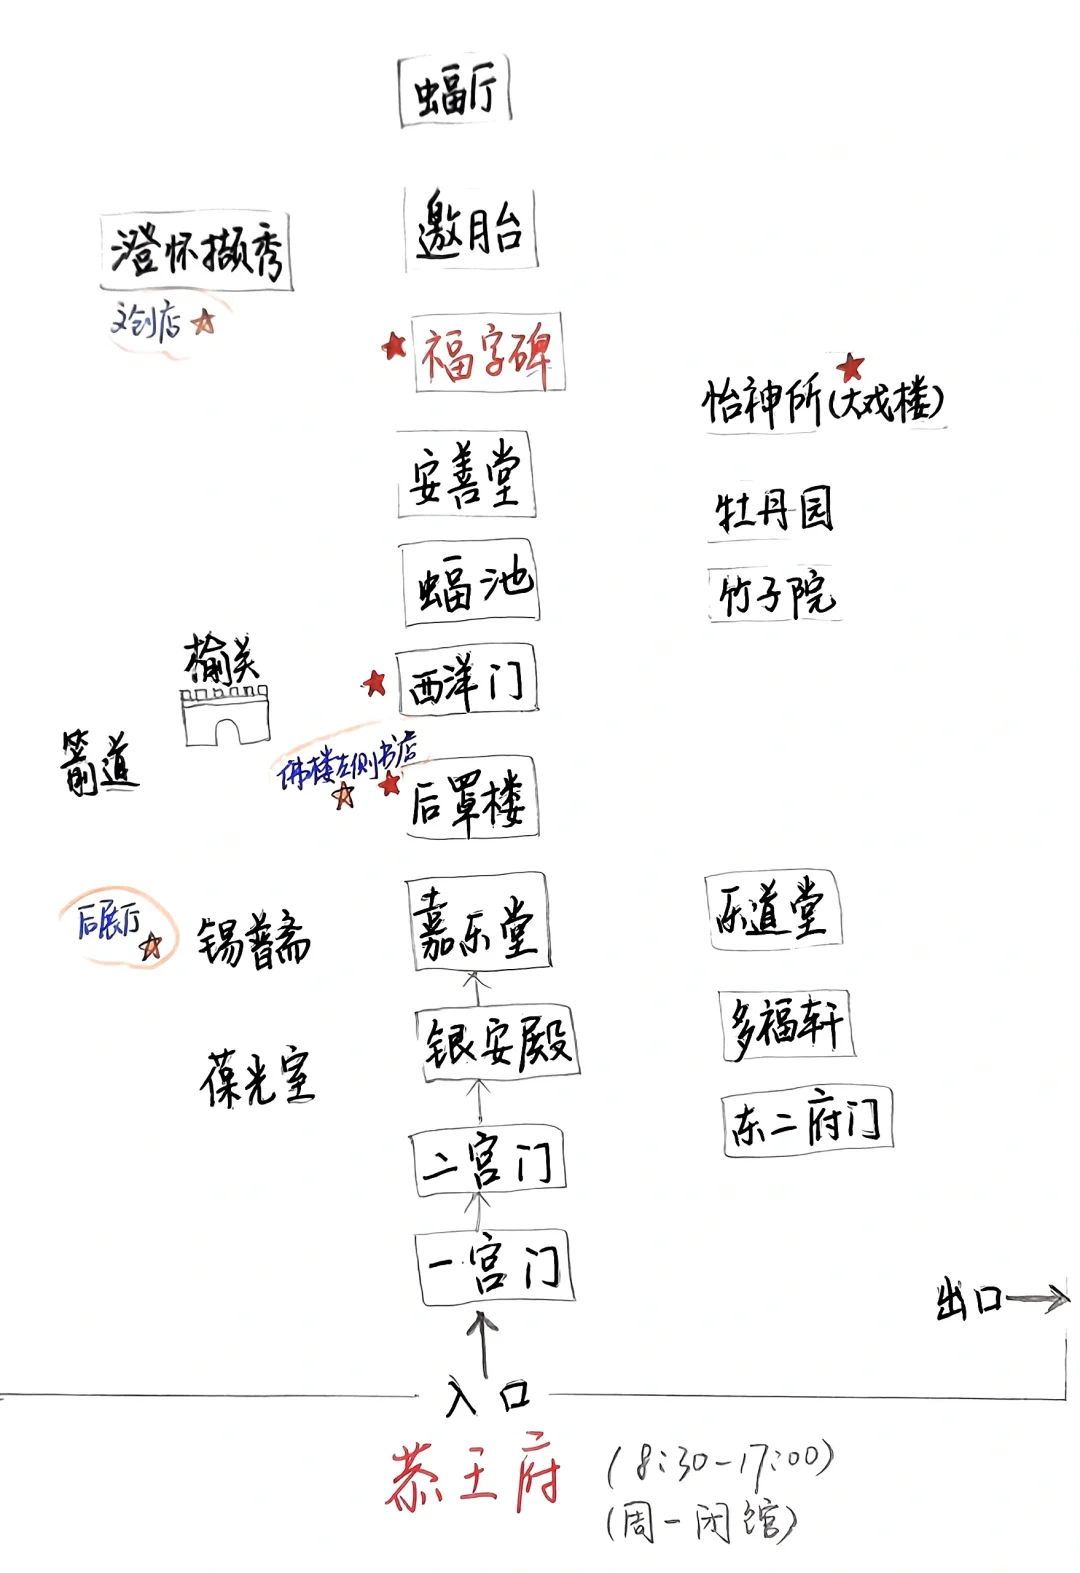 蝠厅
邀月台
澄怀撷秀
文创店
福字碑
怡神所(大戏楼)
安善堂
牡丹园
蝠池
竹子院
榆关
西洋门
箭道
佛楼左侧书店
后罩楼
后展厅
锡普斋
嘉乐堂
乐道堂
银安殿
多福轩
葆光室
东二府门
二宫门
一宫门
出口
入口
恭王府
(8:30-17:00)
(周一闭馆)